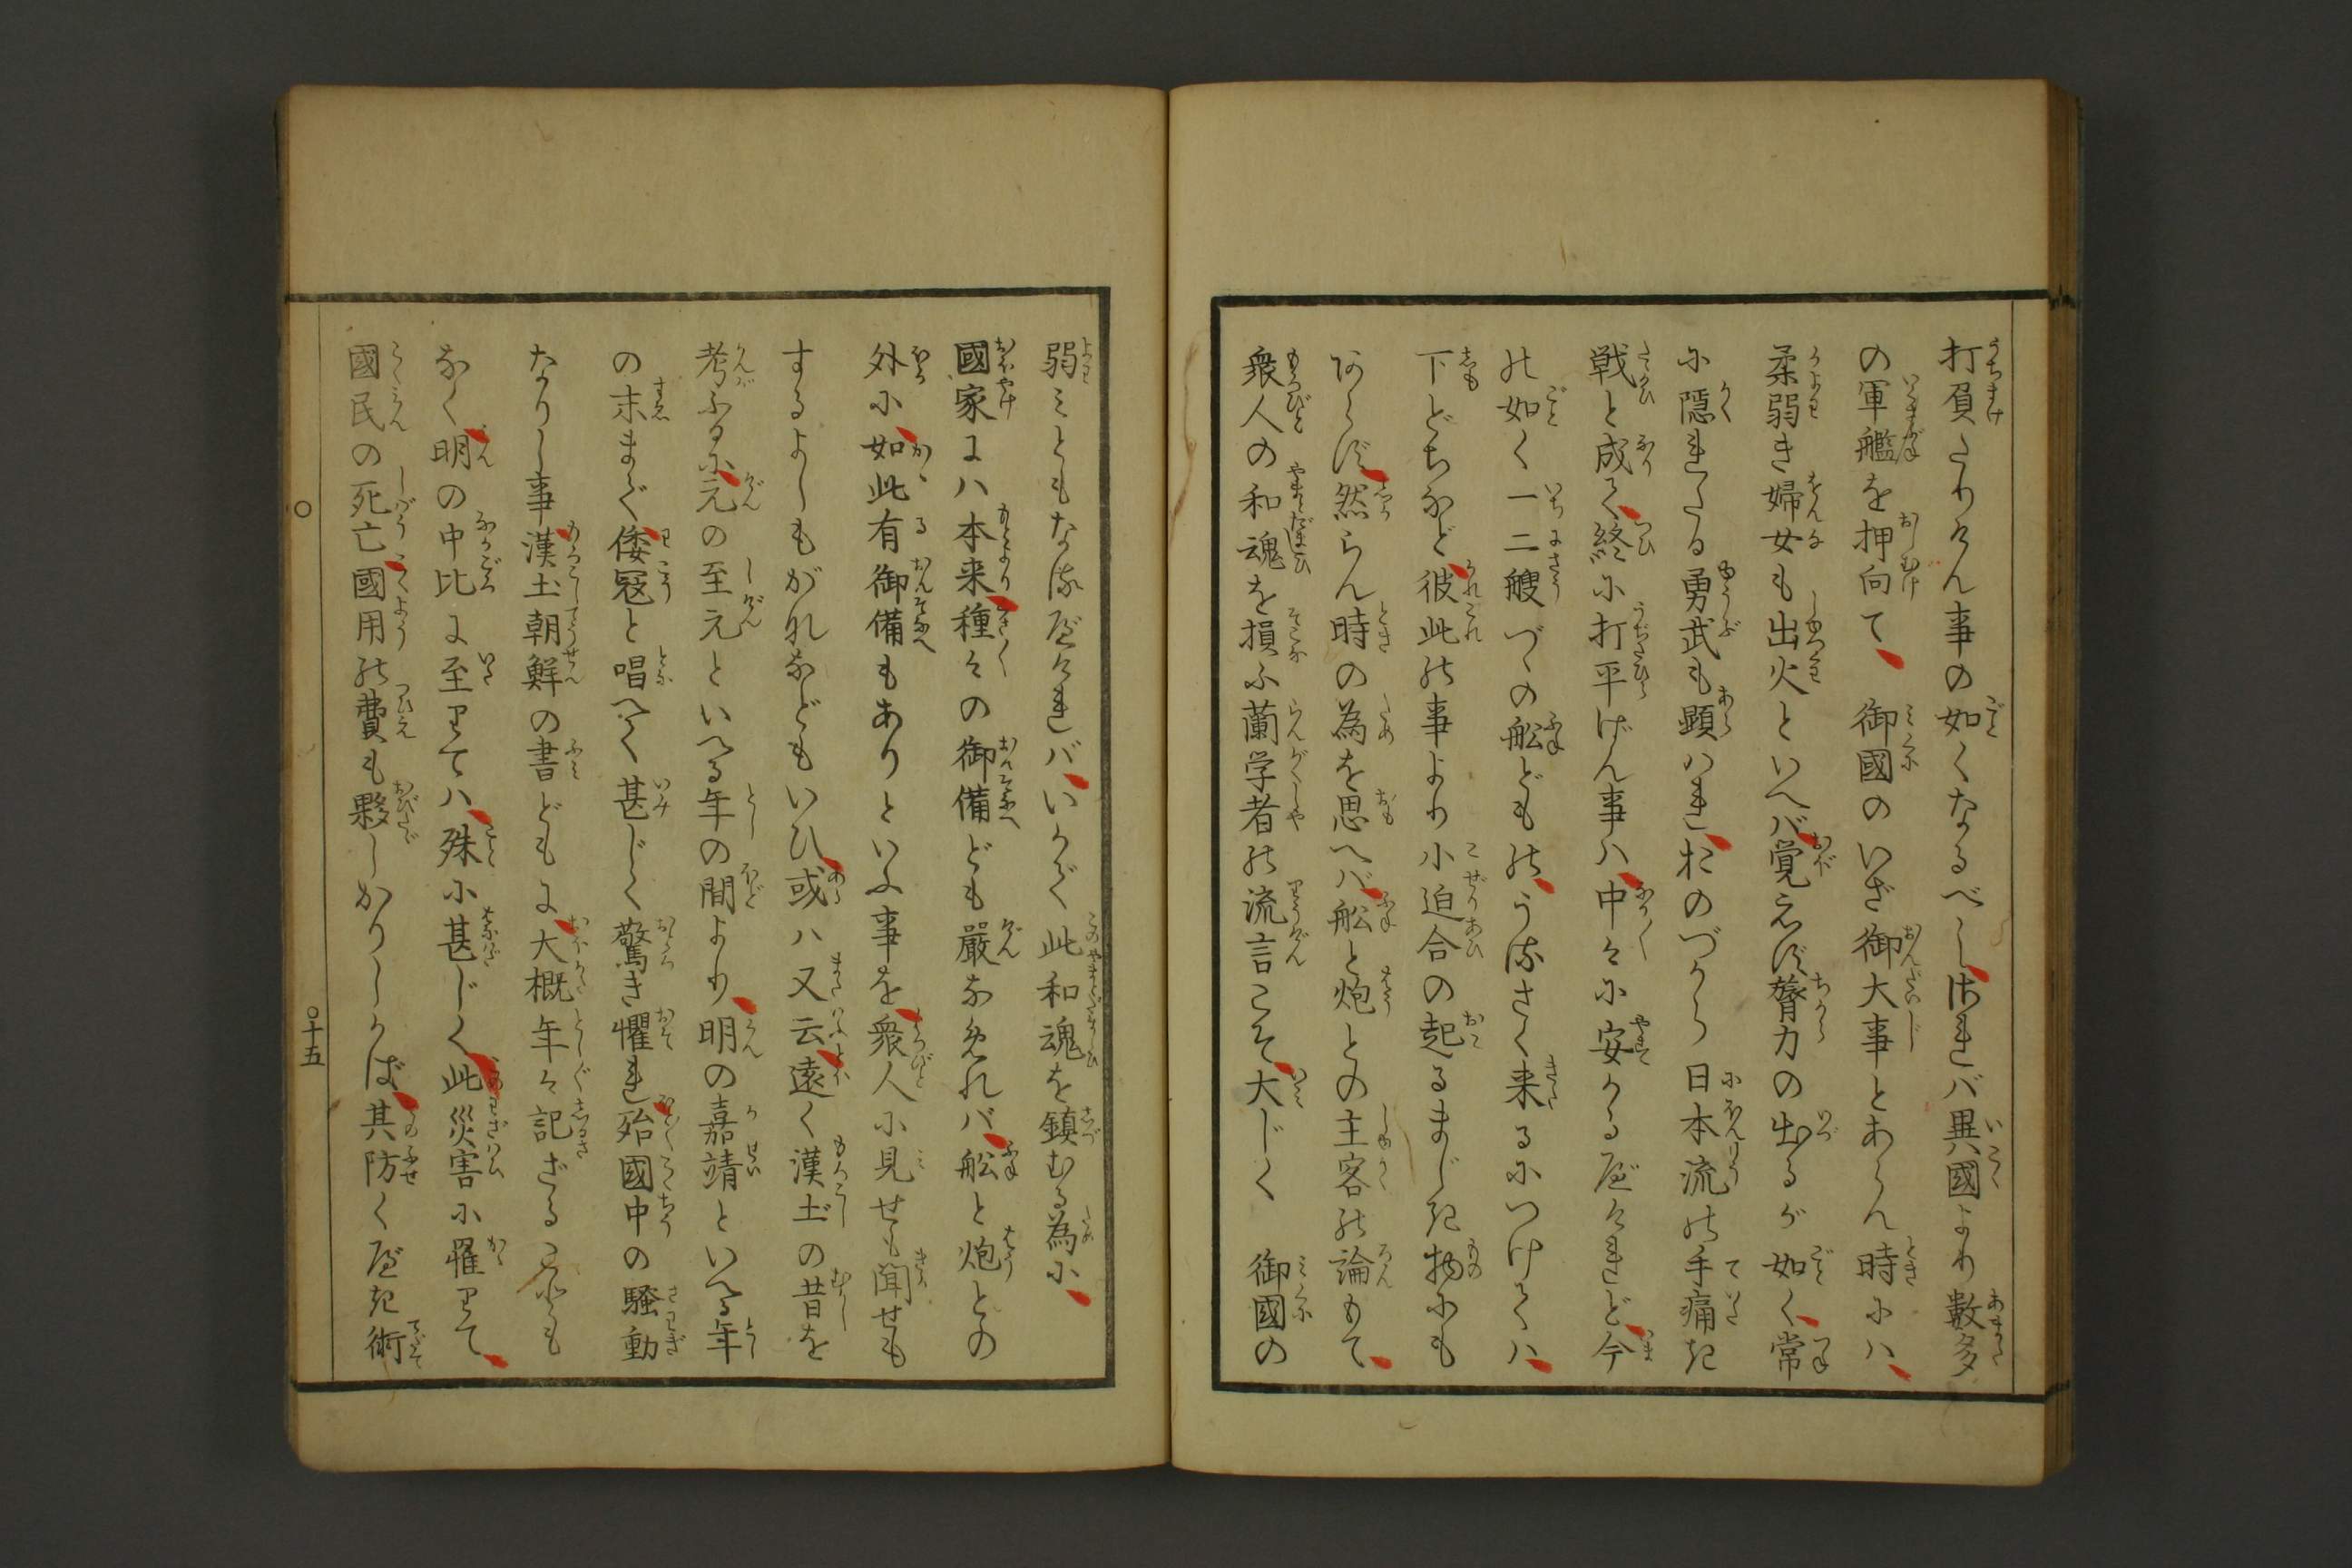 打負たりけん事の如くなるべしされバ異國より数多
の軍艦を押向て、御國のいざ御大事とあらん時にハ、
柔弱き婦女も出火といへバ、覚えず膂力の出るが如く、常
に隠れたる勇武も顕ハれ、おのづから日本流の手痛き
戦と成て、終に打平げん事ハ、中々に安かるべけれど、今
の如く一二艘づゝの舩どもの、うるさく来るにつけてハ、
下どちなど、彼此の事より小迫合の起るまじき物にも
あらず、然らん時の為を思へバ、舩と炮との主客の論もて、
衆人の和魂を損ふ蘭学者の流言こそ、大じく 御國の
弱ミともなるべけれバ、いかで此和魂を鎮むる為に、
國家にハ本来、種々の御備ども厳なめれバ、舩と炮との
外に、如此有御備もありといふ事を、衆人に見せも聞せも
するよしもがれなどもいひ、或ハ又云、遠く漢土の昔を
考ふるに、元の至元といへる年の間より、明の嘉靖といへる年
の末まで、倭寇と唱へて甚じく驚き懼れ、殆國中の騒動
なりし事、漢土朝鮮の書どもに、大概年々記ざるハなくも
なく、明の中比に至りてハ、殊に甚じく、此災害に罹りて、
國民の死亡、國用の費も夥しかりしかば、其防くべき術
十五